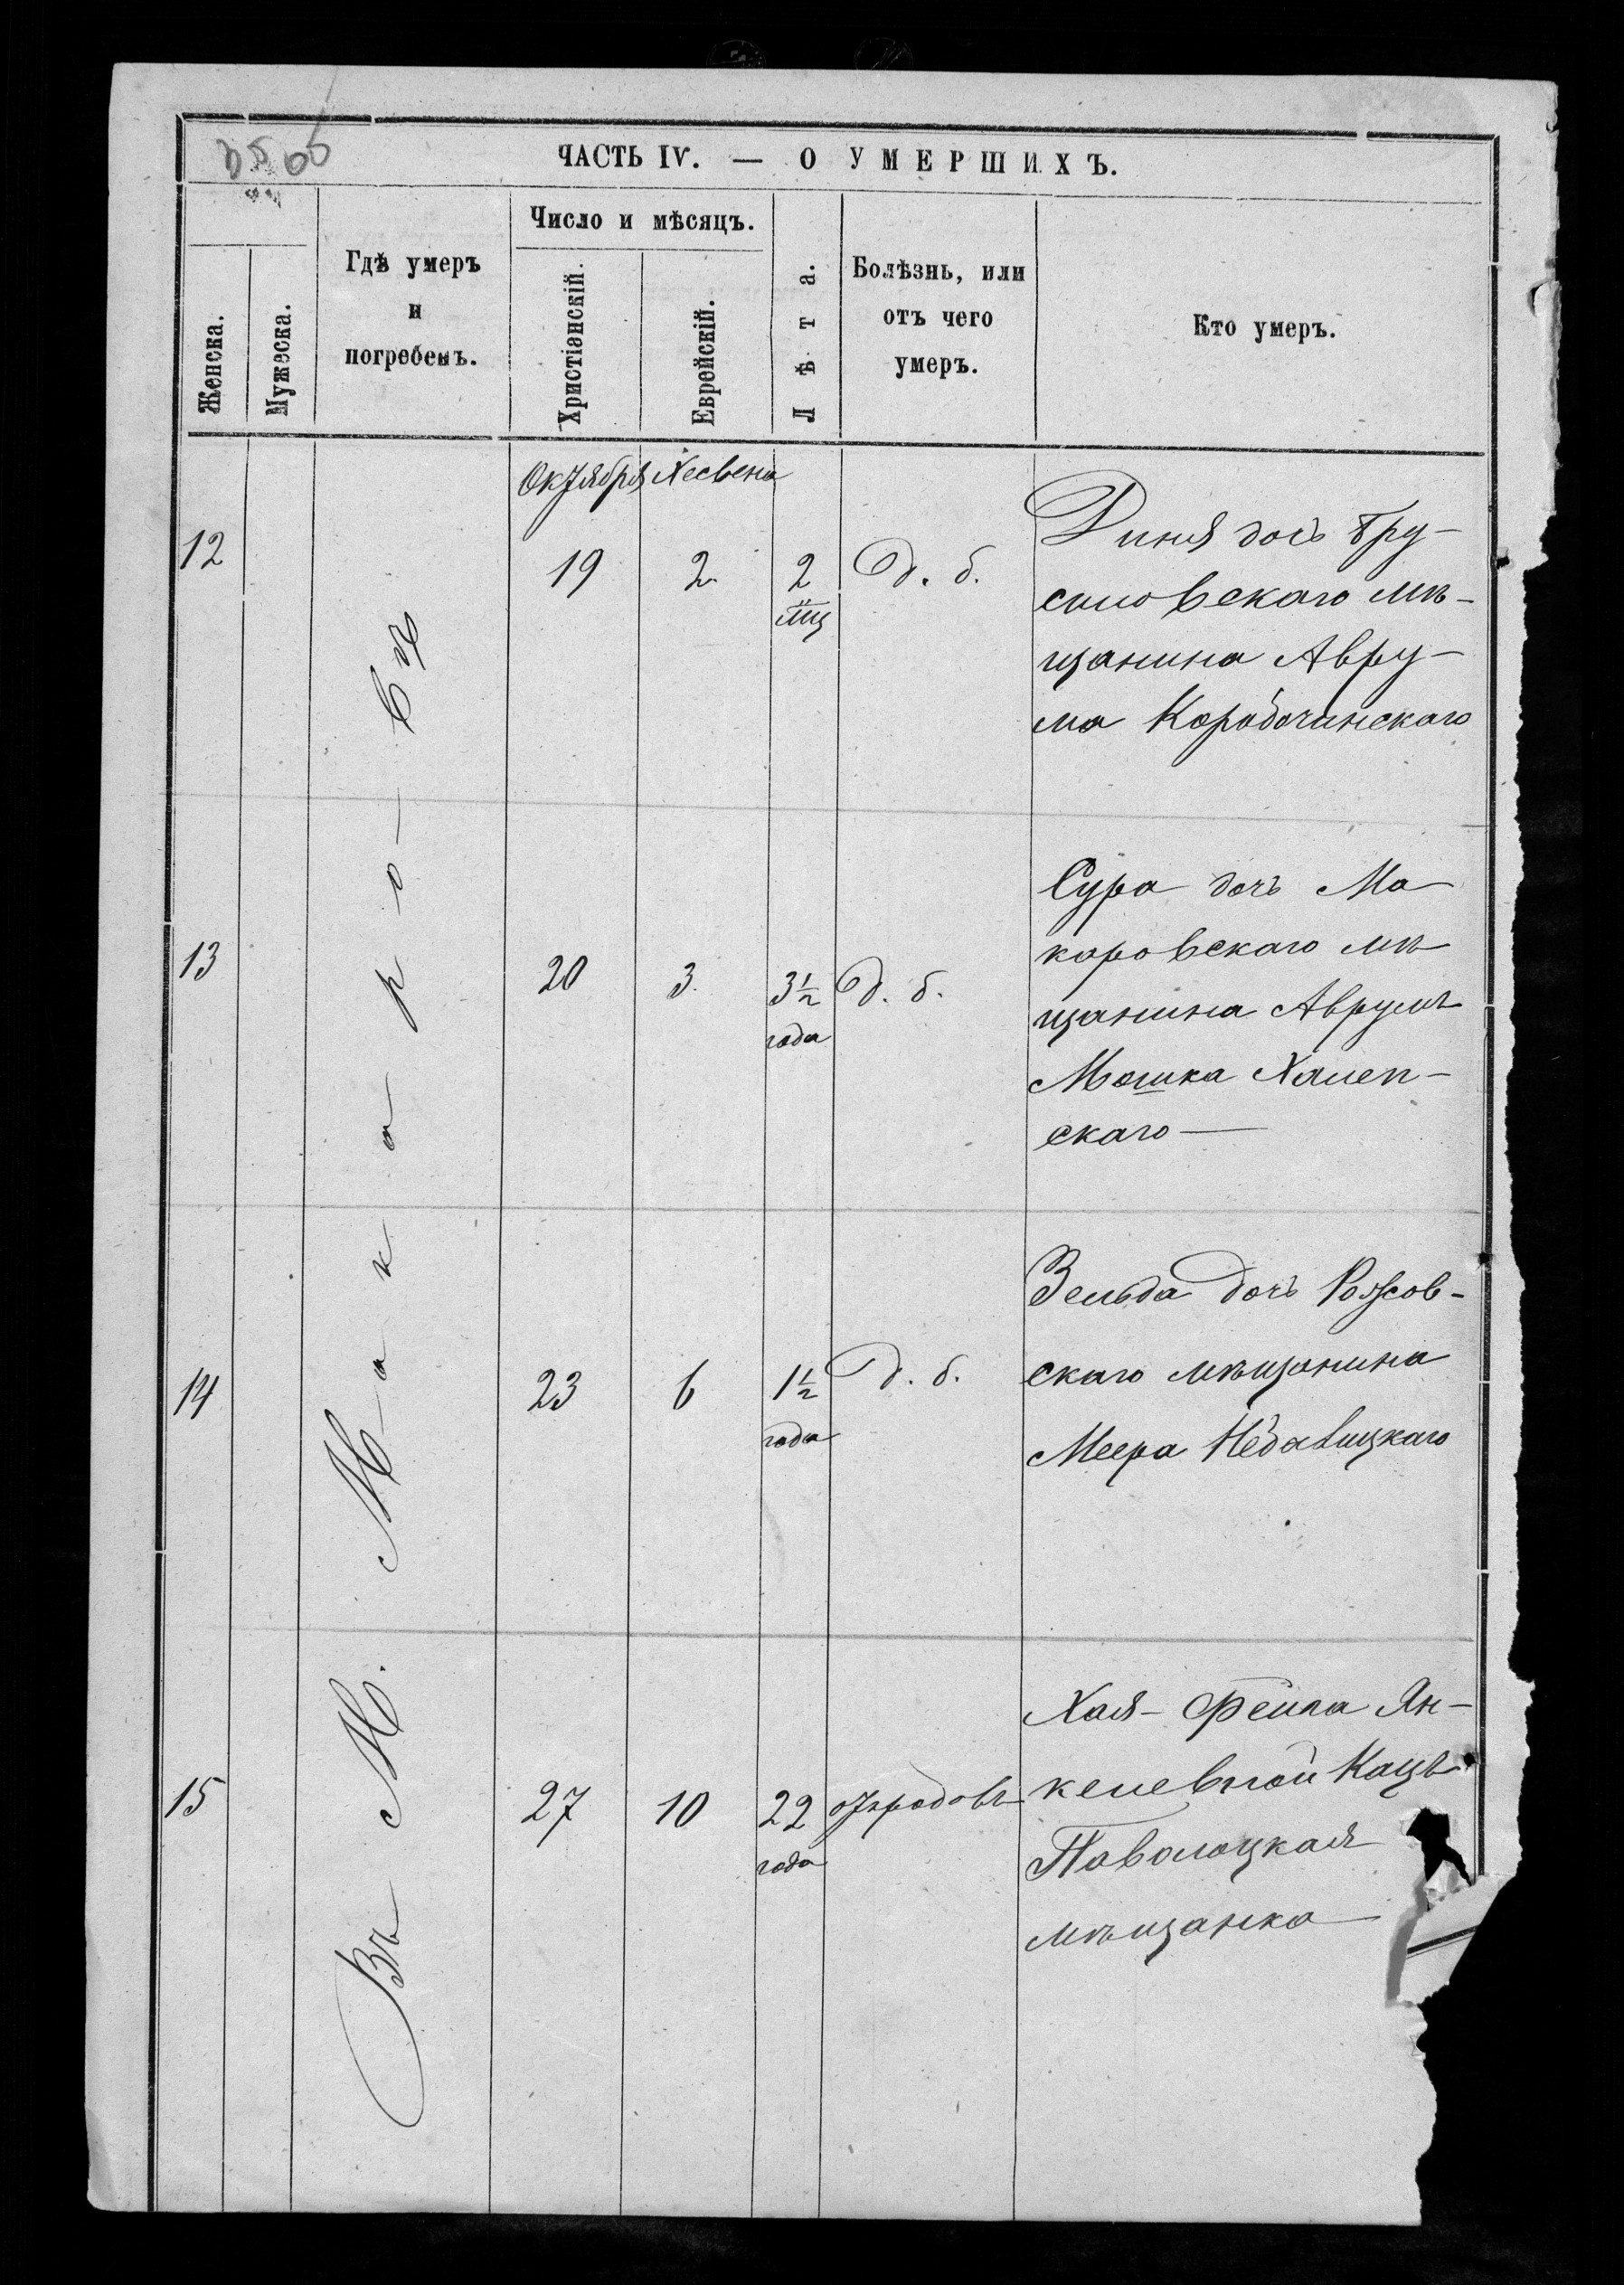 ЧАСТЬ IV. — О УМЕРШИХЪ.
Женска.
Мужеска.
Гдѣ умеръ
и
погребенъ.
Число и мѣсяцъ.
Христіанскій.
Еврейскій.
Лѣта.
Болѣзнь, или
отъ чего
умеръ.
Кто умеръ.
Въ М. Макаро-вѣ
Октября Хесвена
12
19
2
2
мц
д. б.
Диня дочь Бру-
силовскаго мѣ-
щанина Авру-
ма Коробочинскаго
13
20
3
3½
года
д. б.
Сура дочь Ма
каровскаго мѣ
щанина Аврумъ
Мошка Халеп-
скаго
14
23
6
1½
года
д. б.
Зельда дочь Рожов-
скаго мѣщанина
Меера Недавицкаго
15
27
10
22
года
отъ родовъ
Хая-Фейга Ян-
келевной Кацъ
Паволоцкая
мѣщанка